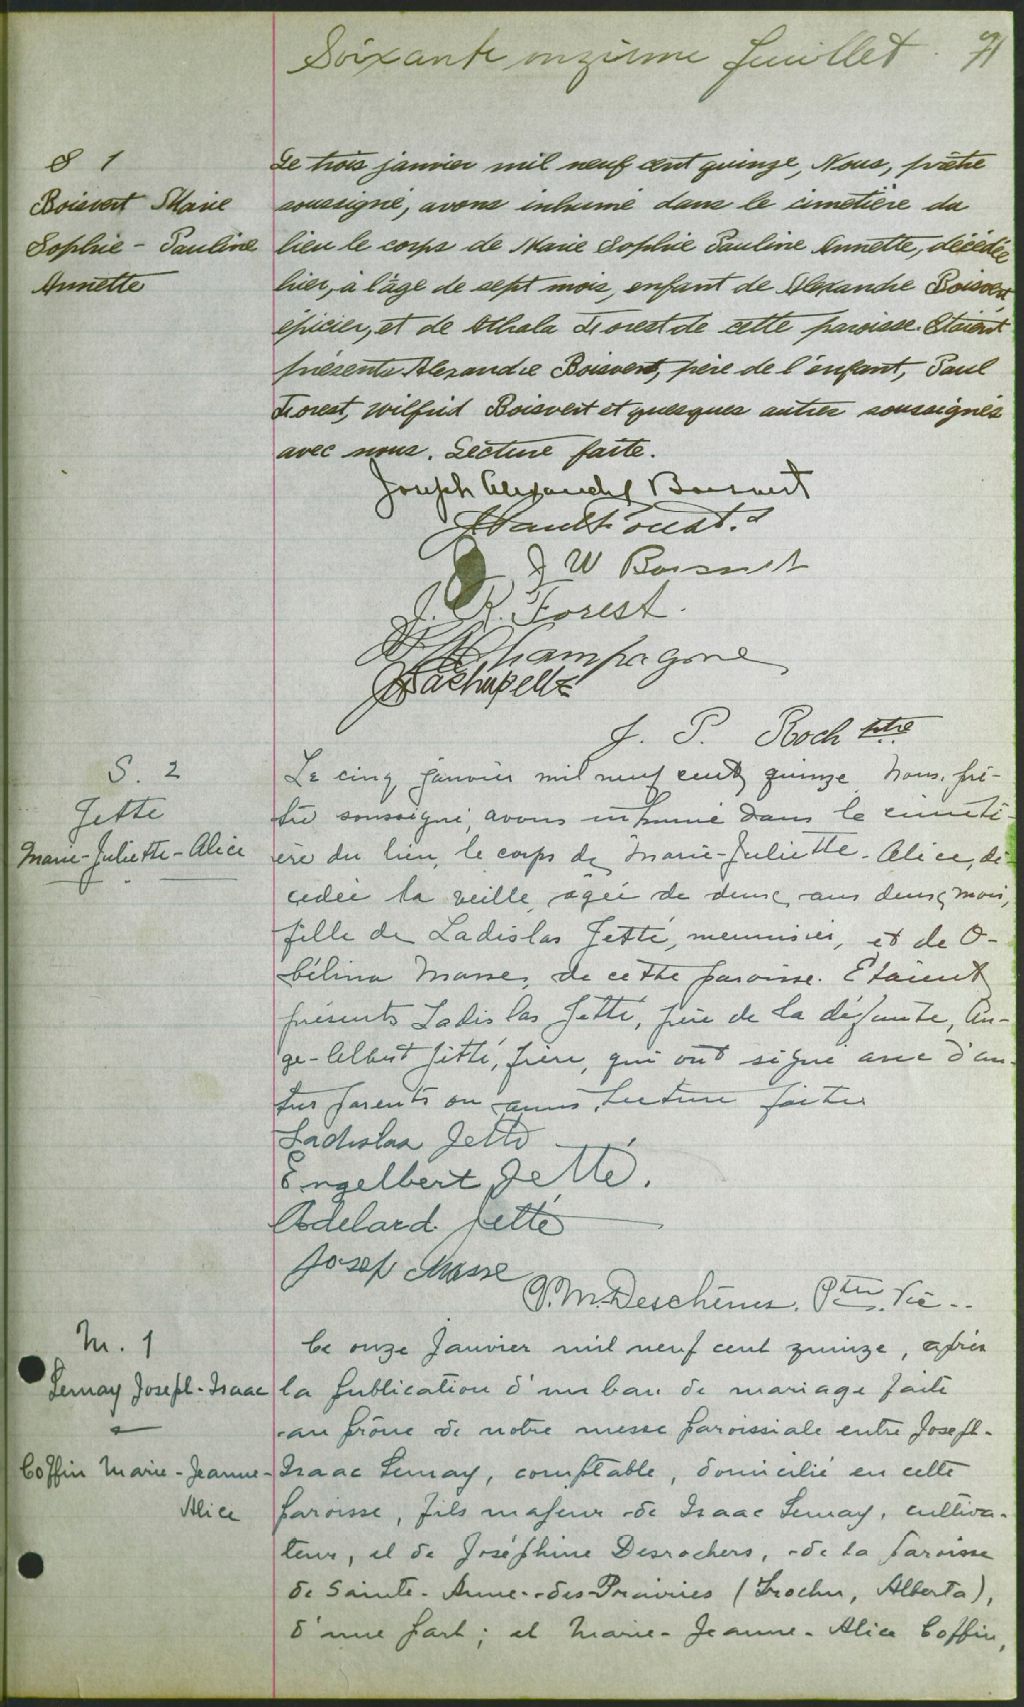 Soixante onzième feuillet. 71
S 1
Boisvert Marie
Sophie - Pauline
Annette
Le trois janvier mil neuf cent quinze, Nous, prêtre
soussigné, avons inhumé dans le cimetière du
lieu le corps de Marie Sophie Pauline Annette, décédée
hier, à l'âge de sept mois, enfant de Alexandre Boisvert
épicier, et de Athala Forest de cette paroisse. Etaient
présents Alexandre Boisvert, père de l'enfant, Paul
Forest, Wilfrid Boisvert et quesques autres soussignés
avec nous. Lecture faite.
Joseph Alexandre Boisvert
J Paul Forest
J W Boisvert
J. R. Forest.
Champagne
Lachapelle
J. P. Roch ptre
S. 2
Jette
Marie-Juliette-Alice
Le cinq janvier mil neuf cent quinze Nous, prê-
tre soussigné, avons inhumé dans le cimeti-
ère du lieu, le corps de Marie-Juliette-Alice, dé-
cedée la veille, agée de deux ans deux mois,
fille de Ladislas Jetté, menuisier, et de O-
bélina Masse, de cette paroisse. Etaient
présents Ladislas Jetté, père de la défunte, An-
ge-Albert Jetté, frère, qui ont signé avec d'au-
tres parents ou amis. Lecture faite
Ladislas Jetté
Engelbert Jetté.
Adelard Jetté
Josep Masse
P.M. Deschênes. Ptre. Vic..
M. 1
Lemay Joseph-Isaac
&
Coffin Marie-Jeanne-
Alice
Le onze Janvier mil neuf cent quinze, après
la publication d'un ban de mariage faite
au prône de notre messe paroissiale entre Joseph-
Isaac Lemay, comptable, domicilié en cette
paroisse, fils majeur de Isaac Lemay, cultiva-
teur, et de Joséphine Desrochers, de la paroisse
de Sainte-Anne-des-Prairies (Trochu, Alberta),
d'une part; et Marie-Jeanne-Alice Coffin,